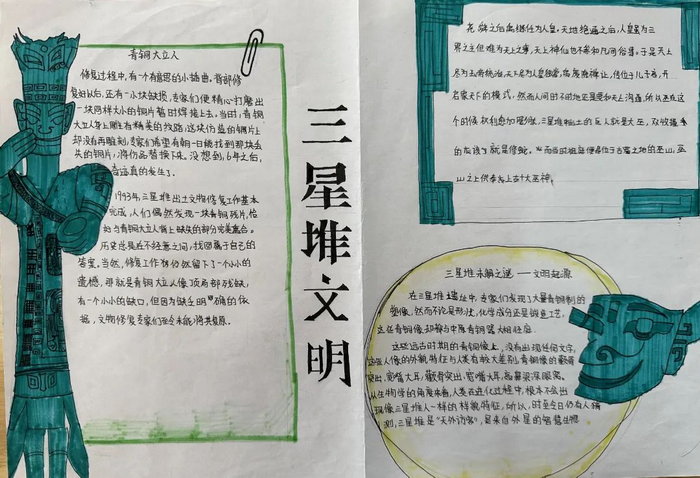 青铜大立人
修复过程中,有个有趣的小插曲,背部修
复好以后,还有一小块缺损,专家们便精心打磨出
一块同样大小的铜片暂时焊接上去。当时,青铜
大立人身上雕有精美的纹路,这块仿造的铜片上
却没有再雕刻,专家们希望有朝一日能找到那块丢
失的铜片,将仿品替换下来,没想到,6年之后,
奇迹真的发生了。
1993年,三星堆出土文物修复工作基本
完成,人们偶然发现一块青铜残片,恰
好与青铜大立人背上缺失的部分完美融合。
历史总是在不经意之间,找回属于自己的
答案。当然,修复工作者仍然留下了一个小小的
遗憾,那就是青铜大立人像顶后部残缺,
有一个小小的缺口,但因为缺乏明确的依
据,文物修复专家们至今未能将其复原。
三星堆文明
尧舜之后禹继任为人皇。天地绝通之后,人皇虽为三
界之主但难为天上之事,天上神仙也不要知凡间俗事。于是天上
尽为玉帝统治,天下尽为人皇独管,
名家天下的模式。然而人间时不时地还是要和天上沟通,所以巫在这
个时候权利愈加增强。三星堆出土的巨人就是大巫,双权握
的应该
山之上供奉上古十大巫神。
三星堆未解之谜——文明起源
在三星堆遗址中,专家们发现了大量青铜制的
塑像,然而不论是形状,化学成分还是锻造工艺,
这些青铜像,却都与中原青铜器大相径庭。
这些远古时期的青铜像上,没有出现任何文字,
这些人像的外貌特征与人类有较大差别,青铜像的眼睛
突出,宽嘴大耳,颧骨突出,宽嘴大耳,高鼻梁深眼窝。
从生物学的角度来看,人类在进化过程中,根本不会出
现像三星堆人一样的样貌特征,所以,时至今日仍有人猜
测,三星堆是“天外访客”,是来自外星的智慧生物